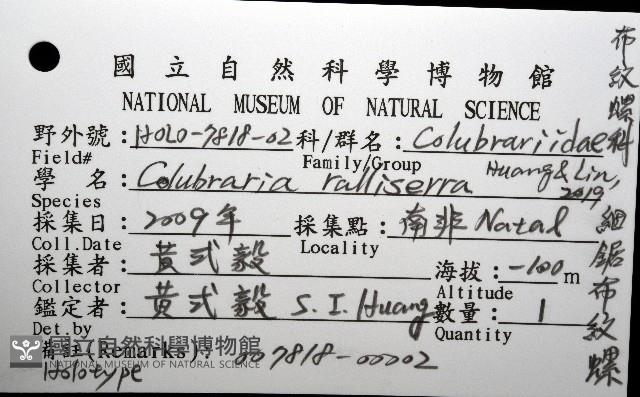 國立自然科學博物館
NATIONAL MUSEUM OF NATURAL SCIENCE
野外號：HOLO-7818-02 科/群名：Colubrariidae
Field# Family/Group
學 名：Colubraria ralliserra Huang & Lin, 2019
Species
採集日：2009年 採集點：南非 Natal
Coll.Date Locality
採集者：黃式毅 海拔：-100 m
Collector Altitude
鑑定者：黃式毅 S. I. Huang 數量：1
Det.by Quantity
備註(Remarks)：007818-00002
Holotype
布紋螺科 細鋸布紋螺
國立自然科學博物館
NATIONAL MUSEUM OF NATURAL SCIENCE